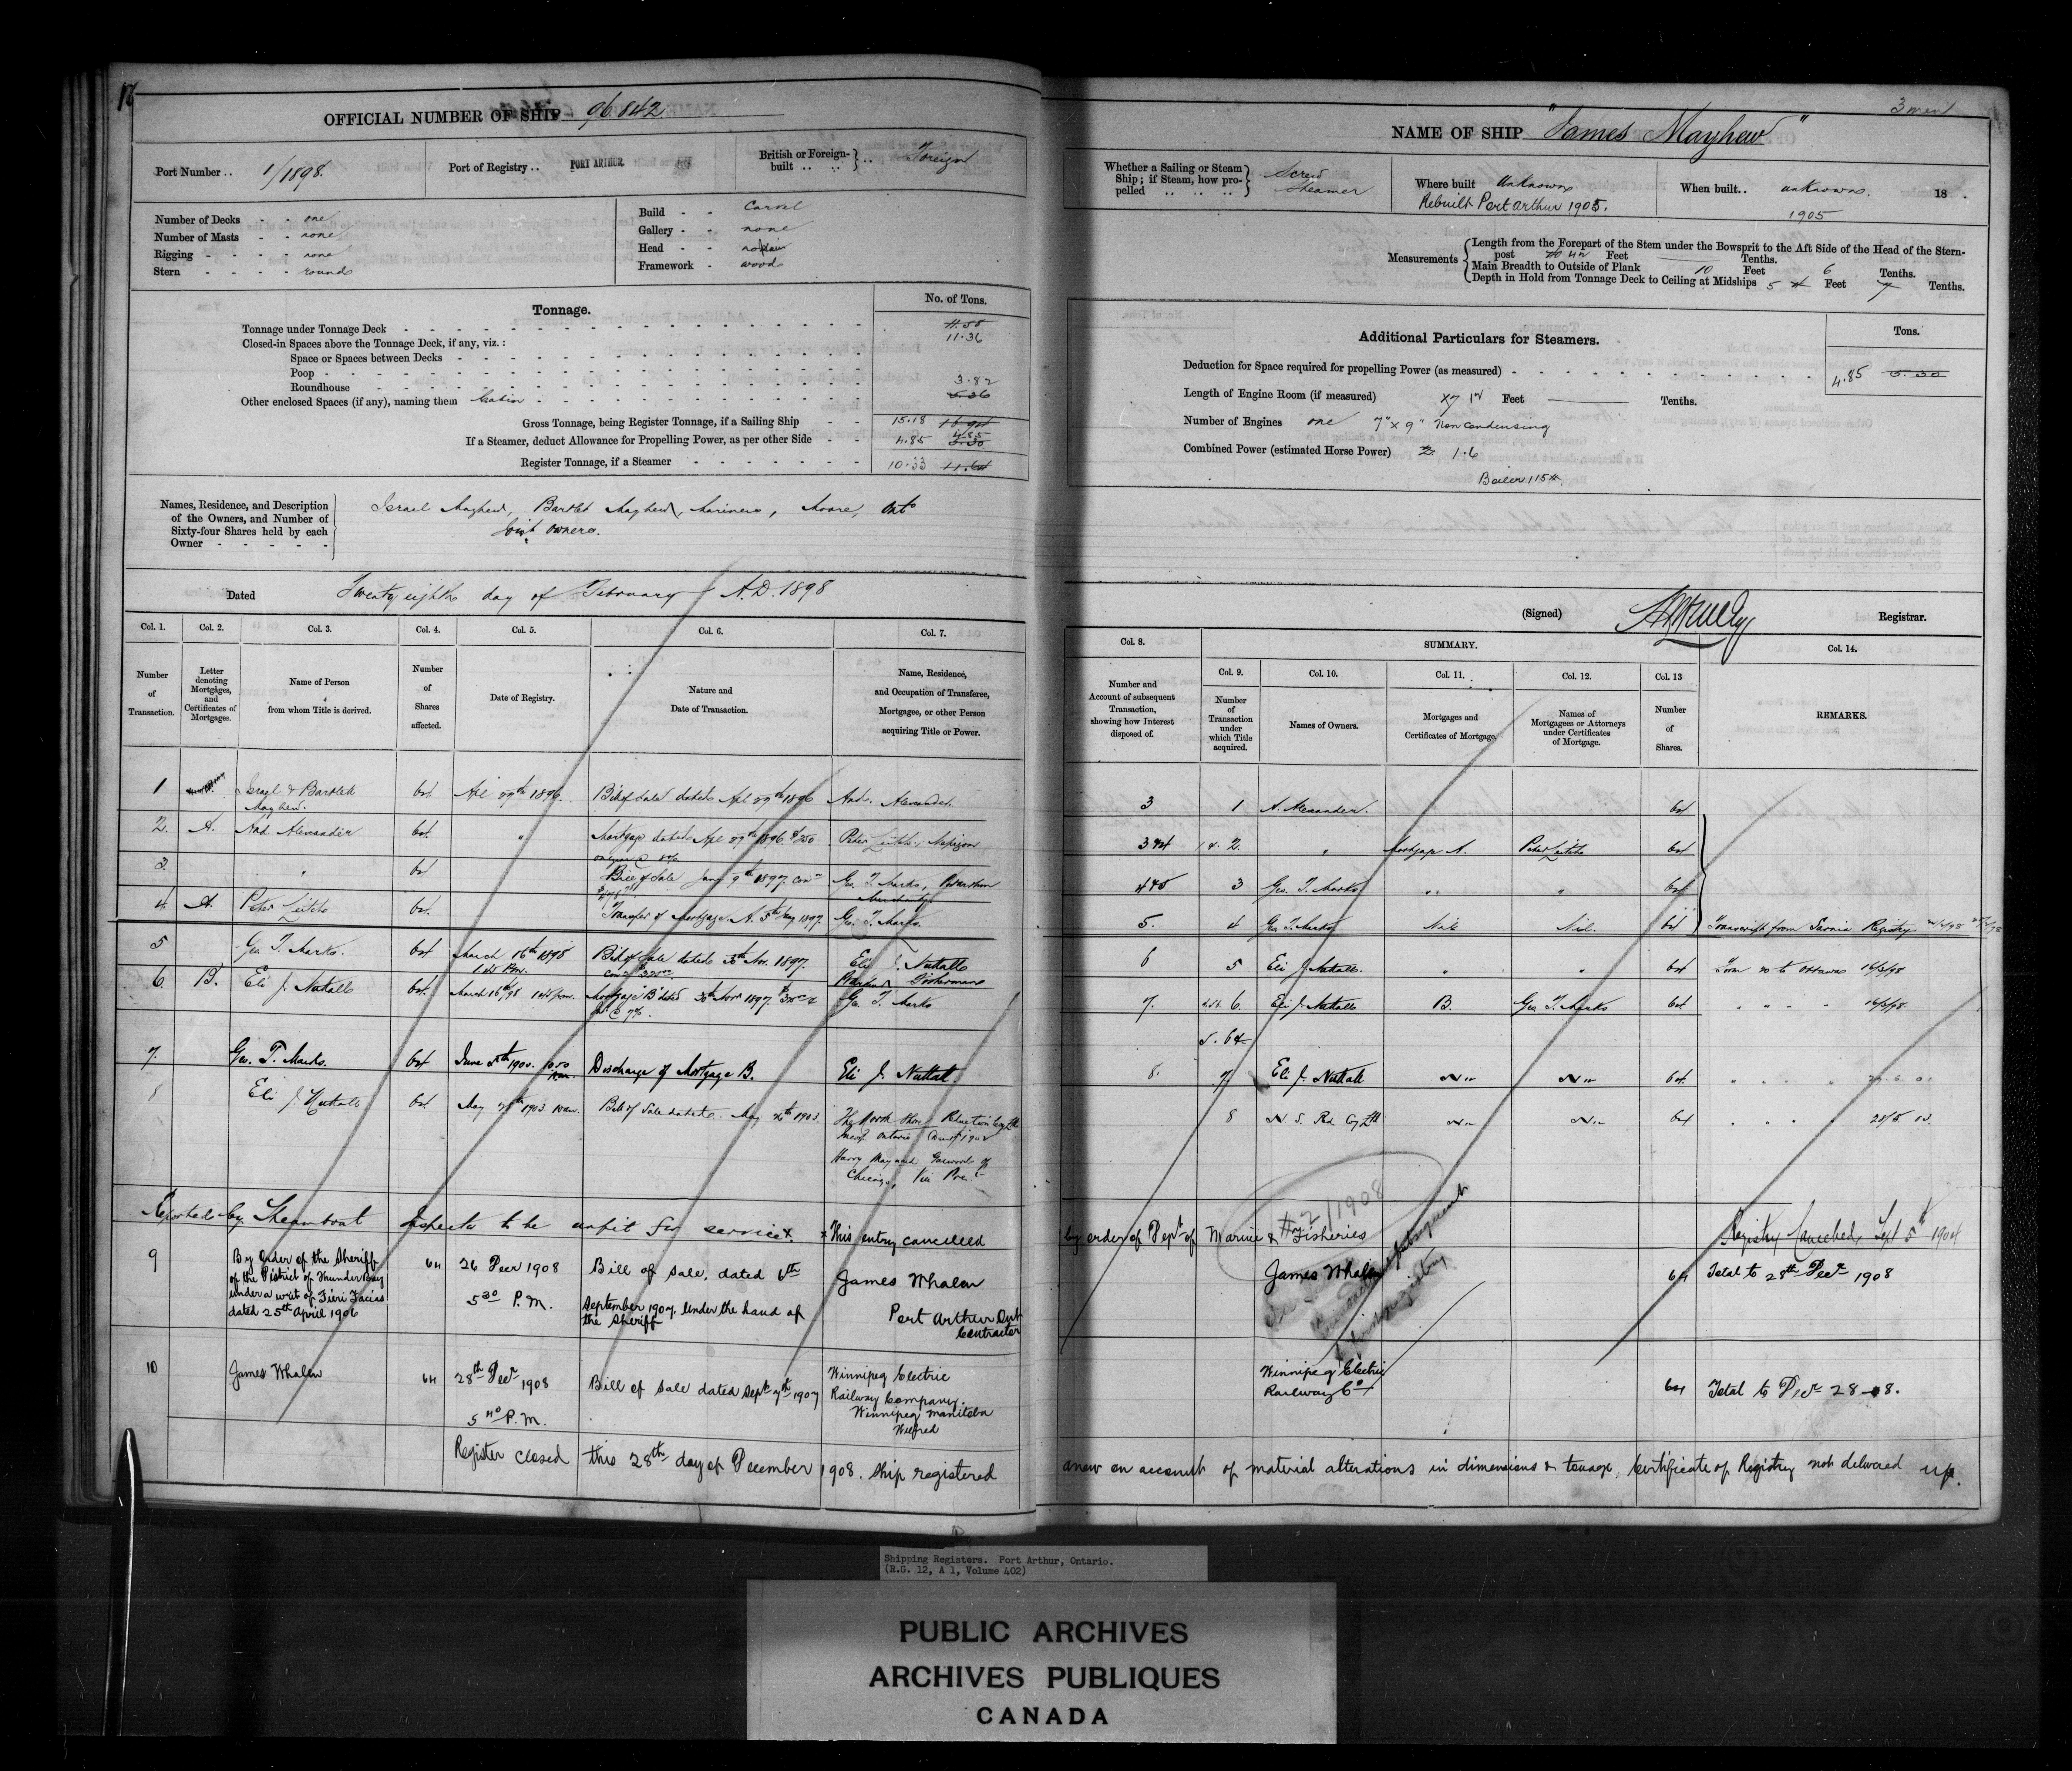 OFFICIAL NUMBER OF SHIP 96.842
Port Number .. 1/1898. Port of Registry .. PORT ARTHUR. British or Foreign-built .. .. } .. Foreign
Number of Decks - - one
Number of Masts - - none
Rigging - - - - none
Stern - - - - round
Build - - Carvel
Gallery - - none
Head - -
Framework - wood
Tonnage.
No. of Tons.
Tonnage under Tonnage Deck
11.36
Closed-in Spaces above the Tonnage Deck, if any, viz.:
Space or Spaces between Decks
Poop
Roundhouse
3.82
Other enclosed Spaces (if any), naming them Cabin
Gross Tonnage, being Register Tonnage, if a Sailing Ship - - 15.18
If a Steamer, deduct Allowance for Propelling Power, as per other Side - - 4.85
Register Tonnage, if a Steamer 10.33
Names, Residence, and Description of the Owners, and Number of Sixty-four Shares held by each Owner
Israel Mayhew, Bartlet Mayhew, Mariners, Moore, Onto
Joint Owners.
Dated Twenty eighth day of February A.D. 1898
Col. 1. Col. 2. Col. 3. Col. 4. Col. 5. Col. 6. Col. 7.
Number of Transaction.
Letter denoting Mortgages, and Certificates of Mortgages.
Name of Person from whom Title is derived.
Number of Shares affected.
Date of Registry.
Nature and Date of Transaction.
Name, Residence, and Occupation of Transferee, Mortgagee, or other Person acquiring Title or Power.
1 Israel & Bartlett Mayhew. 64 Bill of Sale dated And. Alexander.
2. A. And. Alexander 64. " Mortgage dated Peter Leitch, Nepigon
3 " 64 Bill of Sale Geo. T. Marks,
4. A. Peter Leitch 64. Transfer of Mortgage A. Geo. T. Marks.
5 Geo T. Marks. 64 March 16th 1898 Bill of Sale dated Nov. 1897. Eli J. Nuttall
6. B. Eli J. Nuttall 64. March 16th/98 Mortgage "B" dated Nov 1897. Geo T. Marks
7. Geo. T. Marks. 64 June 1900. 10.50 Discharge of Mortgage B. Eli J. Nuttall.
8 Eli J. Nuttall 64. May 1903. Bill of Sale dated May 1903. The North Shore Reduction Coy Ltd
Harry Maynard Garwood of
Chicago, Vice Pres.
Reported by Steamboat Inspector to be unfit for service. This entry cancelled
9 By order of the Sheriff
of the District of Thunder Bay
under a writ of Fieri Facias
dated 25th April 1906
64 26 Decr 1908
5 30 P.M.
Bill of Sale, dated 6th
September 1907. Under the hand of
the Sheriff
James Whalen
Port Arthur Ont
Contractor
10 James Whalen 64 28th Decr 1908
5 40 P.M.
Bill of Sale dated Sept 7th 1907
Winnipeg Electric
Railway Company.
Winnipeg Manitoba
Register closed this 28th day of December 1908. Ship registered
3
NAME OF SHIP "James Mayhew"
Whether a Sailing or Steam Ship; if Steam, how propelled .. .. .. } Screw Steamer
Where built Unknown
Rebuilt Port Arthur 1905.
When built.. unknown. 18 .
1905
Measurements
Length from the Forepart of the Stem under the Bowsprit to the Aft Side of the Head of the Stern-
post Feet Tenths.
Main Breadth to Outside of Plank 10 Feet 6 Tenths.
Depth in Hold from Tonnage Deck to Ceiling at Midships 5 Feet 7 Tenths.
Additional Particulars for Steamers.
Tons.
Deduction for Space required for propelling Power (as measured) 4.85
Length of Engine Room (if measured) Feet Tenths.
Number of Engines one 7" x 9" Non condensing
Combined Power (estimated Horse Power) 1.6
Boiler 115#.
(Signed) Registrar.
Col. 8. SUMMARY. Col. 14.
Col. 9. Col. 10. Col. 11. Col. 12. Col. 13
Number and Account of subsequent Transaction, showing how Interest disposed of.
Number of Transaction under which Title acquired.
Names of Owners.
Mortgages and Certificates of Mortgage.
Names of Mortgagees or Attorneys under Certificates of Mortgage.
Number of Shares.
REMARKS.
3 1 A. Alexander. 64
3 & 4 2. " Mortgage A. Peter Leitch 64
4 & 5 3 Geo. T. Marks " " 64
5. 4 Geo T. Marks Nil Nil. 64 Transcript from Sarnia Registry
6 5 Eli J. Nuttall. " " 64 Form to Ottawa 16/3/98
7. 6. Eli J. Nuttall B. Geo T. Marks 64 " " " " 16/3/98.
8. 7. Eli J. Nuttall Nil Nil 64 " " "
8 N. S. Red. Coy Ltd Nil Nil 64 " " "
by order of Dept of Marine & Fisheries Registry Cancelled, Sept 5th 1904
#2/1908
James Whalen 64 Total to 28th Decr 1908
Winnipeg Electric
Railway Co 64 Total to Decr 28-08.
anew on account of material alterations in dimensions & tonnage, Certificate of Registry not delivered up.
Shipping Registers. Port Arthur, Ontario.
(R.G. 12, A 1, Volume 402)
PUBLIC ARCHIVES
ARCHIVES PUBLIQUES
CANADA